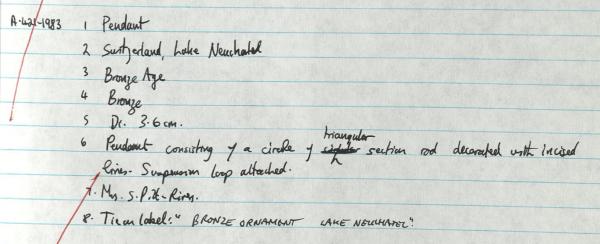 A.421-1983 1 Pendant
2 Switzerland, Lake Neuchatel
3 Bronze Age
4 Bronze
5 Di. 3.6cm.
triangular
6 Pendant consisting of a circle of section rod decorated with incised
lines. Suspension loop attached.
7. Mrs. S. Pitt-Rivers.
8. Tie on label: "BRONZE ORNAMENT LAKE NEUCHATEL".